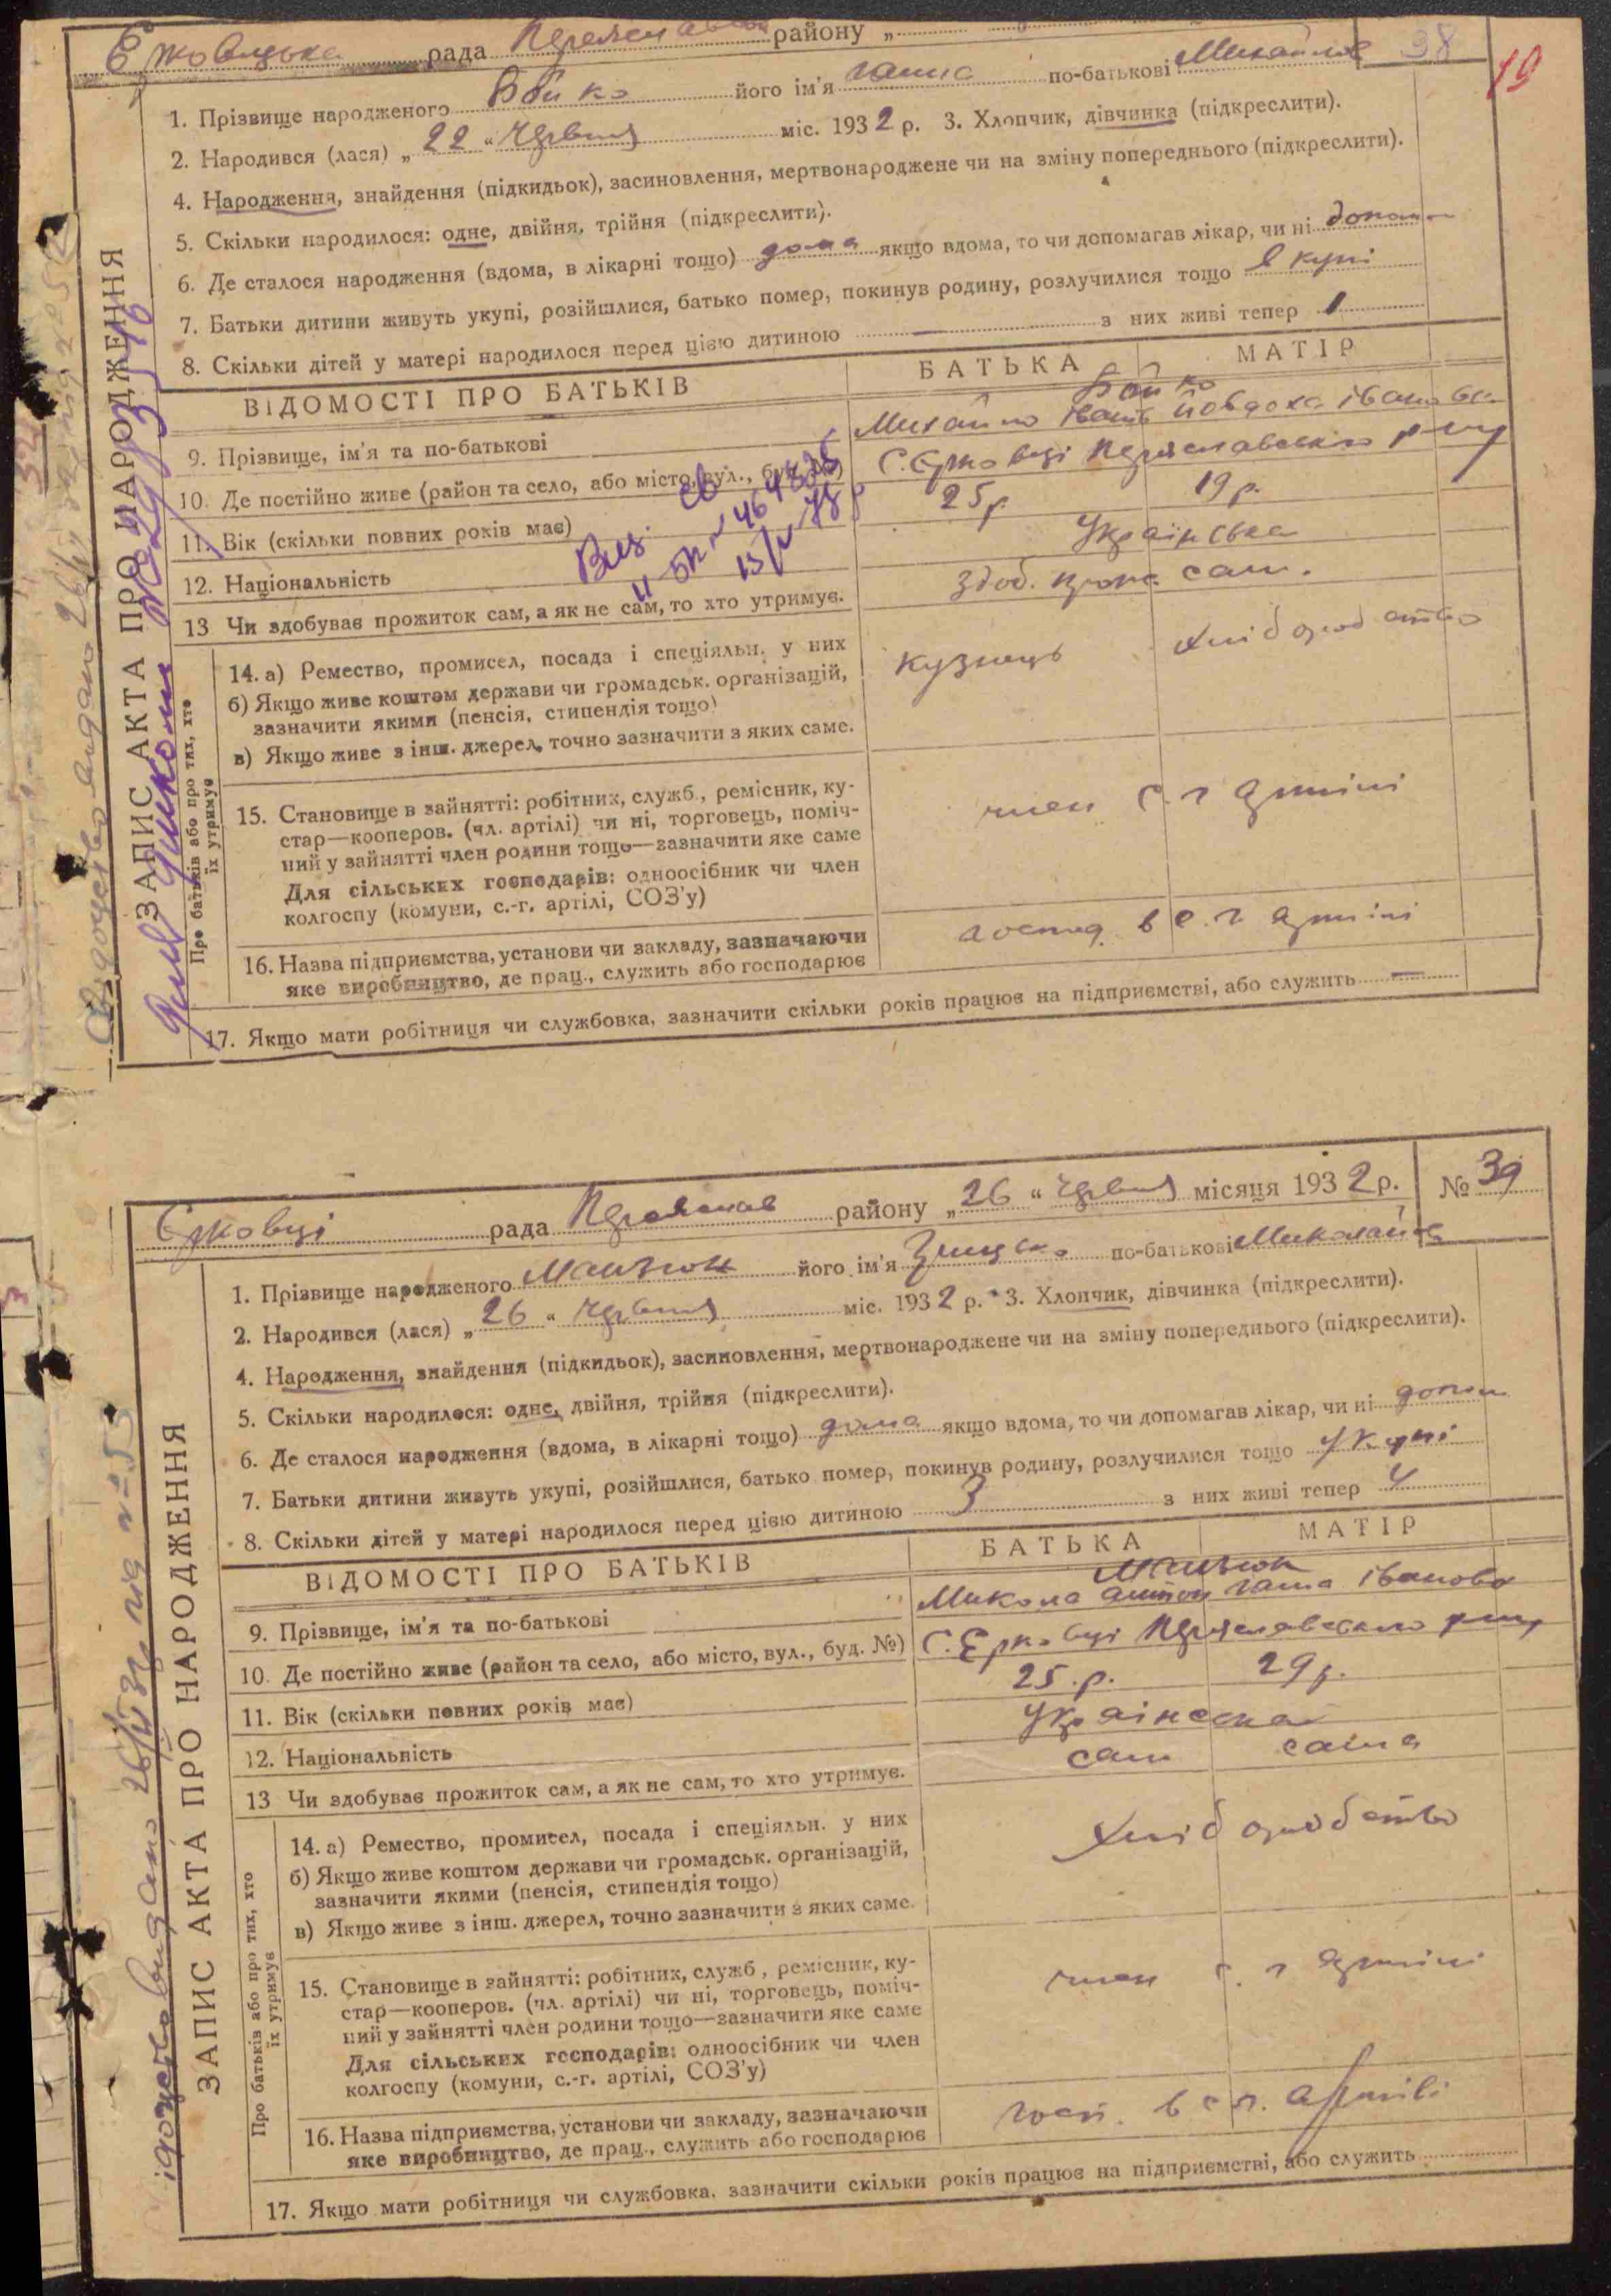 Єрковецька рада Переяслав району „
38
19
1. Прізвище народженого Бойко його ім'я Ганна по-батькові Михайлов
2. Народився (лася) „ 22 “ Червня міс. 1932 р. 3. Хлопчик, дівчинка (підкреслити).
4. Народження, знайдення (підкидьок), засиновлення, мертвонароджене чи на зміну попереднього (підкреслити).
5. Скільки народилося: одне, двійня, трійня (підкреслити).
6. Де сталося народження (вдома, в лікарні тощо) дома якщо вдома, то чи допомагав лікар, чи ні
7. Батьки дитини живуть укупі, розійшлися, батько помер, покинув родину, розлучилися тощо в купі
8. Скільки дітей у матері народилося перед цією дитиною — з них живі тепер 1
ВІДОМОСТІ ПРО БАТЬКІВ БАТЬКА МАТІР
Бойко
9. Прізвище, ім'я та по-батькові Михайло Іванів Йовдоха Івановна
10. Де постійно живе (район та село, або місто, вул., буд. №) С. Єрковці Переяславского р-ну
11. Вік (скільки повних років має) 25 р. 19 р.
12. Національність Українська
13 Чи здобуває прожиток сам, а як не сам, то хто утримує. здоб. прож. сам.
14. а) Ремество, промисел, посада і спеціяльн. у них кузнець хліборобство
б) Якщо живе коштом держави чи громадськ. організацій,
зазначити якими (пенсія, стипендія тощо)
в) Якщо живе з інш. джерел, точно зазначити з яких саме.
15. Становище в зайнятті: робітник, служб., ремісник, ку-
стар—кооперов. (чл. артілі) чи ні, торговець, поміч- член с. г артілі
ний у зайнятті член родини тощо—зазначити яке саме
Для сільських господарів: одноосібник чи член
колгоспу (комуни, с.-г. артілі, СОЗ'у)
16. Назва підприємства, установи чи закладу, зазначаючи в с. г артілі
яке виробництво, де прац., служить або господарює
17. Якщо мати робітниця чи службовка, зазначити скільки років працює на підприємстві, або служить —
ЗАПИС АКТА ПРО НАРОДЖЕННЯ
Про батьків або про тих, хто
їх утримує
Єрковці рада Переяслав району „ 26 “ Червня місяця 1932 р. № 39
1. Прізвище народженого його ім'я Грицько по-батькові Миколайов
2. Народився (лася) „ 26 “ Червня міс. 1932 р. 3. Хлопчик, дівчинка (підкреслити).
4. Народження, знайдення (підкидьок), засиновлення, мертвонароджене чи на зміну попереднього (підкреслити).
5. Скільки народилося: одне, двійня, трійня (підкреслити).
6. Де сталося народження (вдома, в лікарні тощо) дома якщо вдома, то чи допомагав лікар, чи ні
7. Батьки дитини живуть укупі, розійшлися, батько помер, покинув родину, розлучилися тощо укупі
8. Скільки дітей у матері народилося перед цією дитиною 3 з них живі тепер 4
ВІДОМОСТІ ПРО БАТЬКІВ БАТЬКА МАТІР
9. Прізвище, ім'я та по-батькові Микола Антон Ганна Іванова
10. Де постійно живе (район та село, або місто, вул., буд. №) С. Єрковці Переяславского р-ну
11. Вік (скільки повних років має) 25. р. 29 р.
12. Національність Українска
13 Чи здобуває прожиток сам, а як не сам, то хто утримує. сам сама
14. а) Ремество, промисел, посада і спеціяльн. у них хліборобство
б) Якщо живе коштом держави чи громадськ. організацій,
зазначити якими (пенсія, стипендія тощо)
в) Якщо живе з інш. джерел, точно зазначити з яких саме.
15. Становище в зайнятті: робітник, служб., ремісник, ку- член с. г артілі
стар—кооперов. (чл. артілі) чи ні, торговець, поміч-
ний у зайнятті член родини тощо—зазначити яке саме
Для сільських господарів: одноосібник чи член
колгоспу (комуни, с.-г. артілі, СОЗ'у)
16. Назва підприємства, установи чи закладу, зазначаючи госп. в с г. артілі
яке виробництво, де прац., служить або господарює
17. Якщо мати робітниця чи службовка, зазначити скільки років працює на підприємстві, або служить
ЗАПИС АКТА ПРО НАРОДЖЕННЯ
Про батьків або про тих, хто
їх утримує